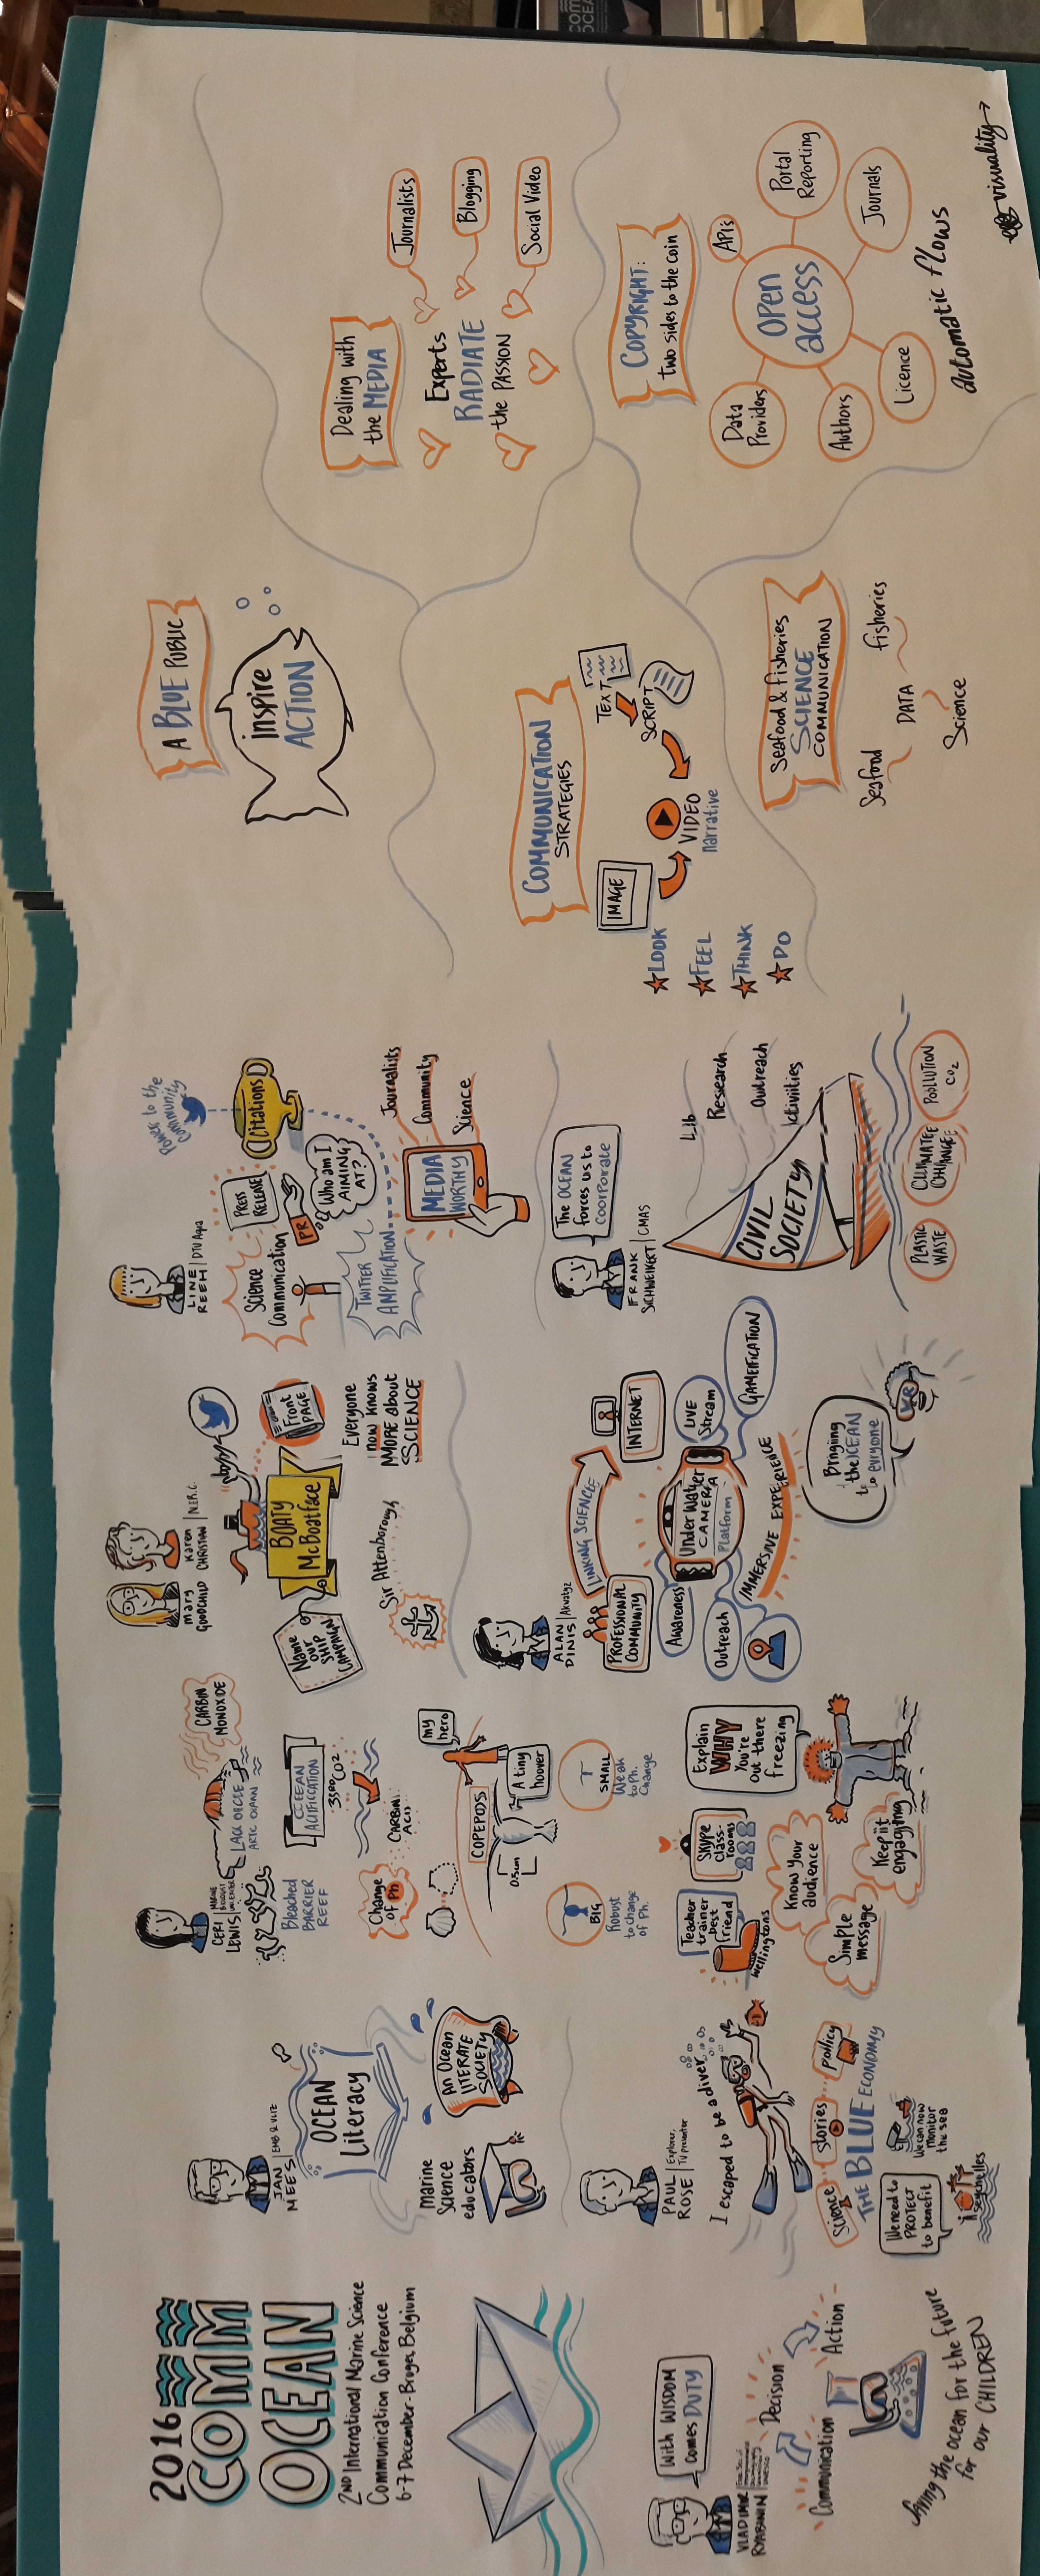 2016
COMM
OCEAN
2ND International Marine Science
Communication Conference
6-7 December - Bruges Belgium
With WISDOM
comes DUTY
VLADIMIR
RYABININ
Communication
Decision
Action
the ocean for the future
for our CHILDREN
JAN
MEES
EMB & VLIZ
OCEAN
Literacy
Marine
Science
educators
An Ocean
LITERATE
SOCIETY
PAUL
ROSE
Explorer,
TV presenter
I escaped to be a diver
Science
Stories
policy
THE BLUE ECONOMY
We need to
PROTECT
to benefit
We can now
monitor
the sea
Seychelles
CERI
LEWIS
Bleached
BARRIER
REEF
CARBIN
MONOXIDE
ACIFIFICATION
CO2
CARBIN
ACID
Change
of Ph
COPEPODS
my
hero
A tiny
hoover
0.5um
BIG
Robust
to change
of Ph.
SMALL
Weak
to Ph.
Change
Teacher
trainer
best
friend
Wellingtons
Skype
class-
rooms
Explain
WHY
You're
out there
freezing
Know your
audience
Simple
message
Keep it
engaging
Mary
GOODCHILD
Karen
CHRISTIAN
N.E.R.C.
Name
our
SHIP
CAMPAIGN
BOATY
McBoatface
Front
PAGE
Everyone
now knows
MORE about
SCIENCE
Sir Attenborough
ALAN
DINIS
LINKING SCIENCE
PROFESSIONAL
COMMUNITY
INTERNET
Awareness
Under Water
CAMERA
Platform
LIVE
Stream
GAMEIFICATION
Outreach
IMMERSIVE EXPERIENCE
Bringing
the OCEAN
to everyone
LINE
REEH
DTU Aqua
Science
Communication
PRESS
RELEASE
PR
Who am I
AIMING
AT?
Citations
Power to the
Community
TWITTER
AMPLIFICATION
MEDIA
WORTHY
Journalists
Community
Science
FRANK
SCHWEIKERT
CMAS
The OCEAN
forces us to
COORPORATE
CIVIL
SOCIETY
Research
Outreach
Activities
PLASTIC
WASTE
POOLLUTION
CO2
A BLUE PUBLIC
inspire
ACTION
COMMUNICATION
STRATEGIES
IMAGE
VIDEO
narrative
TEXT
SCRIPT
LOOK
FEEL
THINK
DO
Seafood & fisheries
SCIENCE
COMMUNICATION
Seafood
DATA
fisheries
Science
Dealing with
the MEDIA
Experts
RADIATE
the PASSION
Journalists
Blogging
Social Video
COPYRIGHT:
two sides to the coin
Open
access
Data
Providers
APIs
Portal
Reporting
Journals
Licence
Authors
automatic flows
visuality